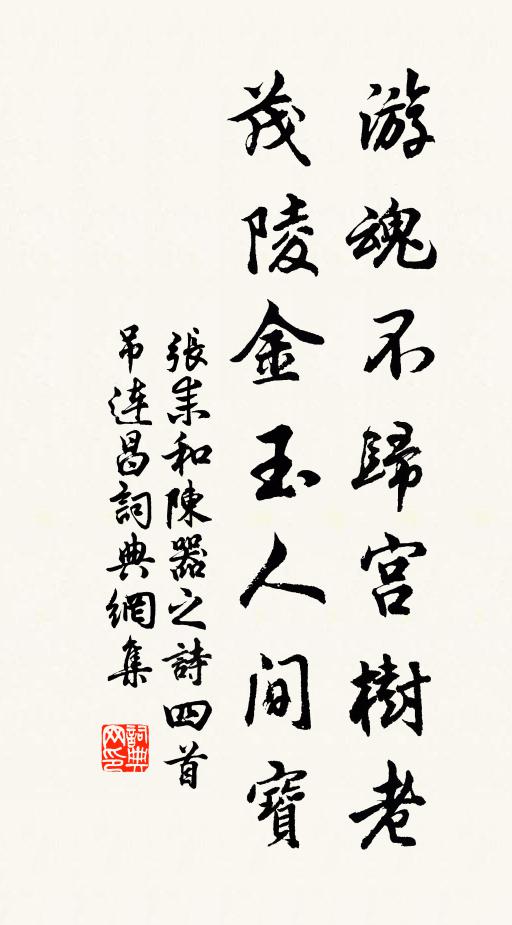 游魂不歸宮樹老
茂陵金玉人间寶
張耒和陳器之詩四首
吊連昌詞典網集
詞典
网印